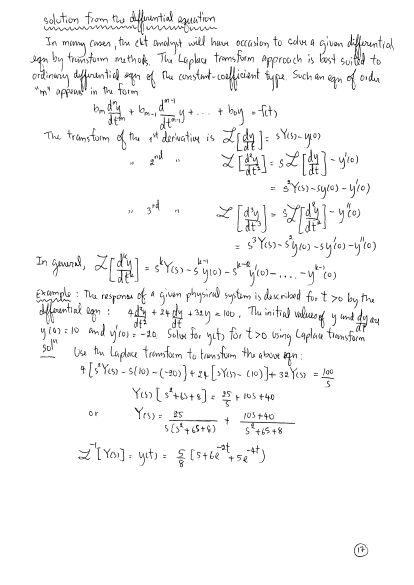 solution from the differential equation
In many cases, the ckt analyst will have occasion to solve a given differential
eqn by transform methods. The Laplace transform approach is best suited to
ordinary differential eqn of the constant-coefficient type. Such an eqn of order
"m" appears in the form
bₘ dᵐy/dtᵐ + bₘ₋₁ dᵐ⁻¹y/dtᵐ⁻¹ + ... + b₀y = f(t)
The transform of the 1st derivative is ℒ[dy/dt] = sY(s) - y(0)
" 2nd " ℒ[d²y/dt²] = sℒ[dy/dt] - y'(0)
= s²Y(s) - sy(0) - y'(0)
" 3rd " ℒ[d³y/dt³] = sℒ[d²y/dt²] - y''(0)
= s³Y(s) - s²y(0) - sy'(0) - y''(0)
In general, ℒ[dᵏy/dtᵏ] = sᵏY(s) - sᵏ⁻¹y(0) - sᵏ⁻²y'(0) - .... - yᵏ⁻¹(0)
Example : The response of a given physical system is described for t > 0 by the
differential eqn : 4d²y/dt² + 24dy/dt + 32y = 100. The initial values of y and dy/dt are
y(0) = 10 and y'(0) = -20. Solve for y(t) for t > 0 using Laplace transform
Solⁿ Use the Laplace transform to transform the above eqn :
4[s²Y(s) - s(10) - (-20)] + 24[sY(s) - (10)] + 32Y(s) = 100/s
Y(s)[s² + 6s + 8] = 25/s + 10s + 40
or Y(s) = 25/s(s² + 6s + 8) + 10s + 40/s² + 6s + 8
ℒ⁻¹[Y(s)] = y(t) = 5/8 [5 + 6e⁻²ᵗ + 5e⁻⁴ᵗ)
17